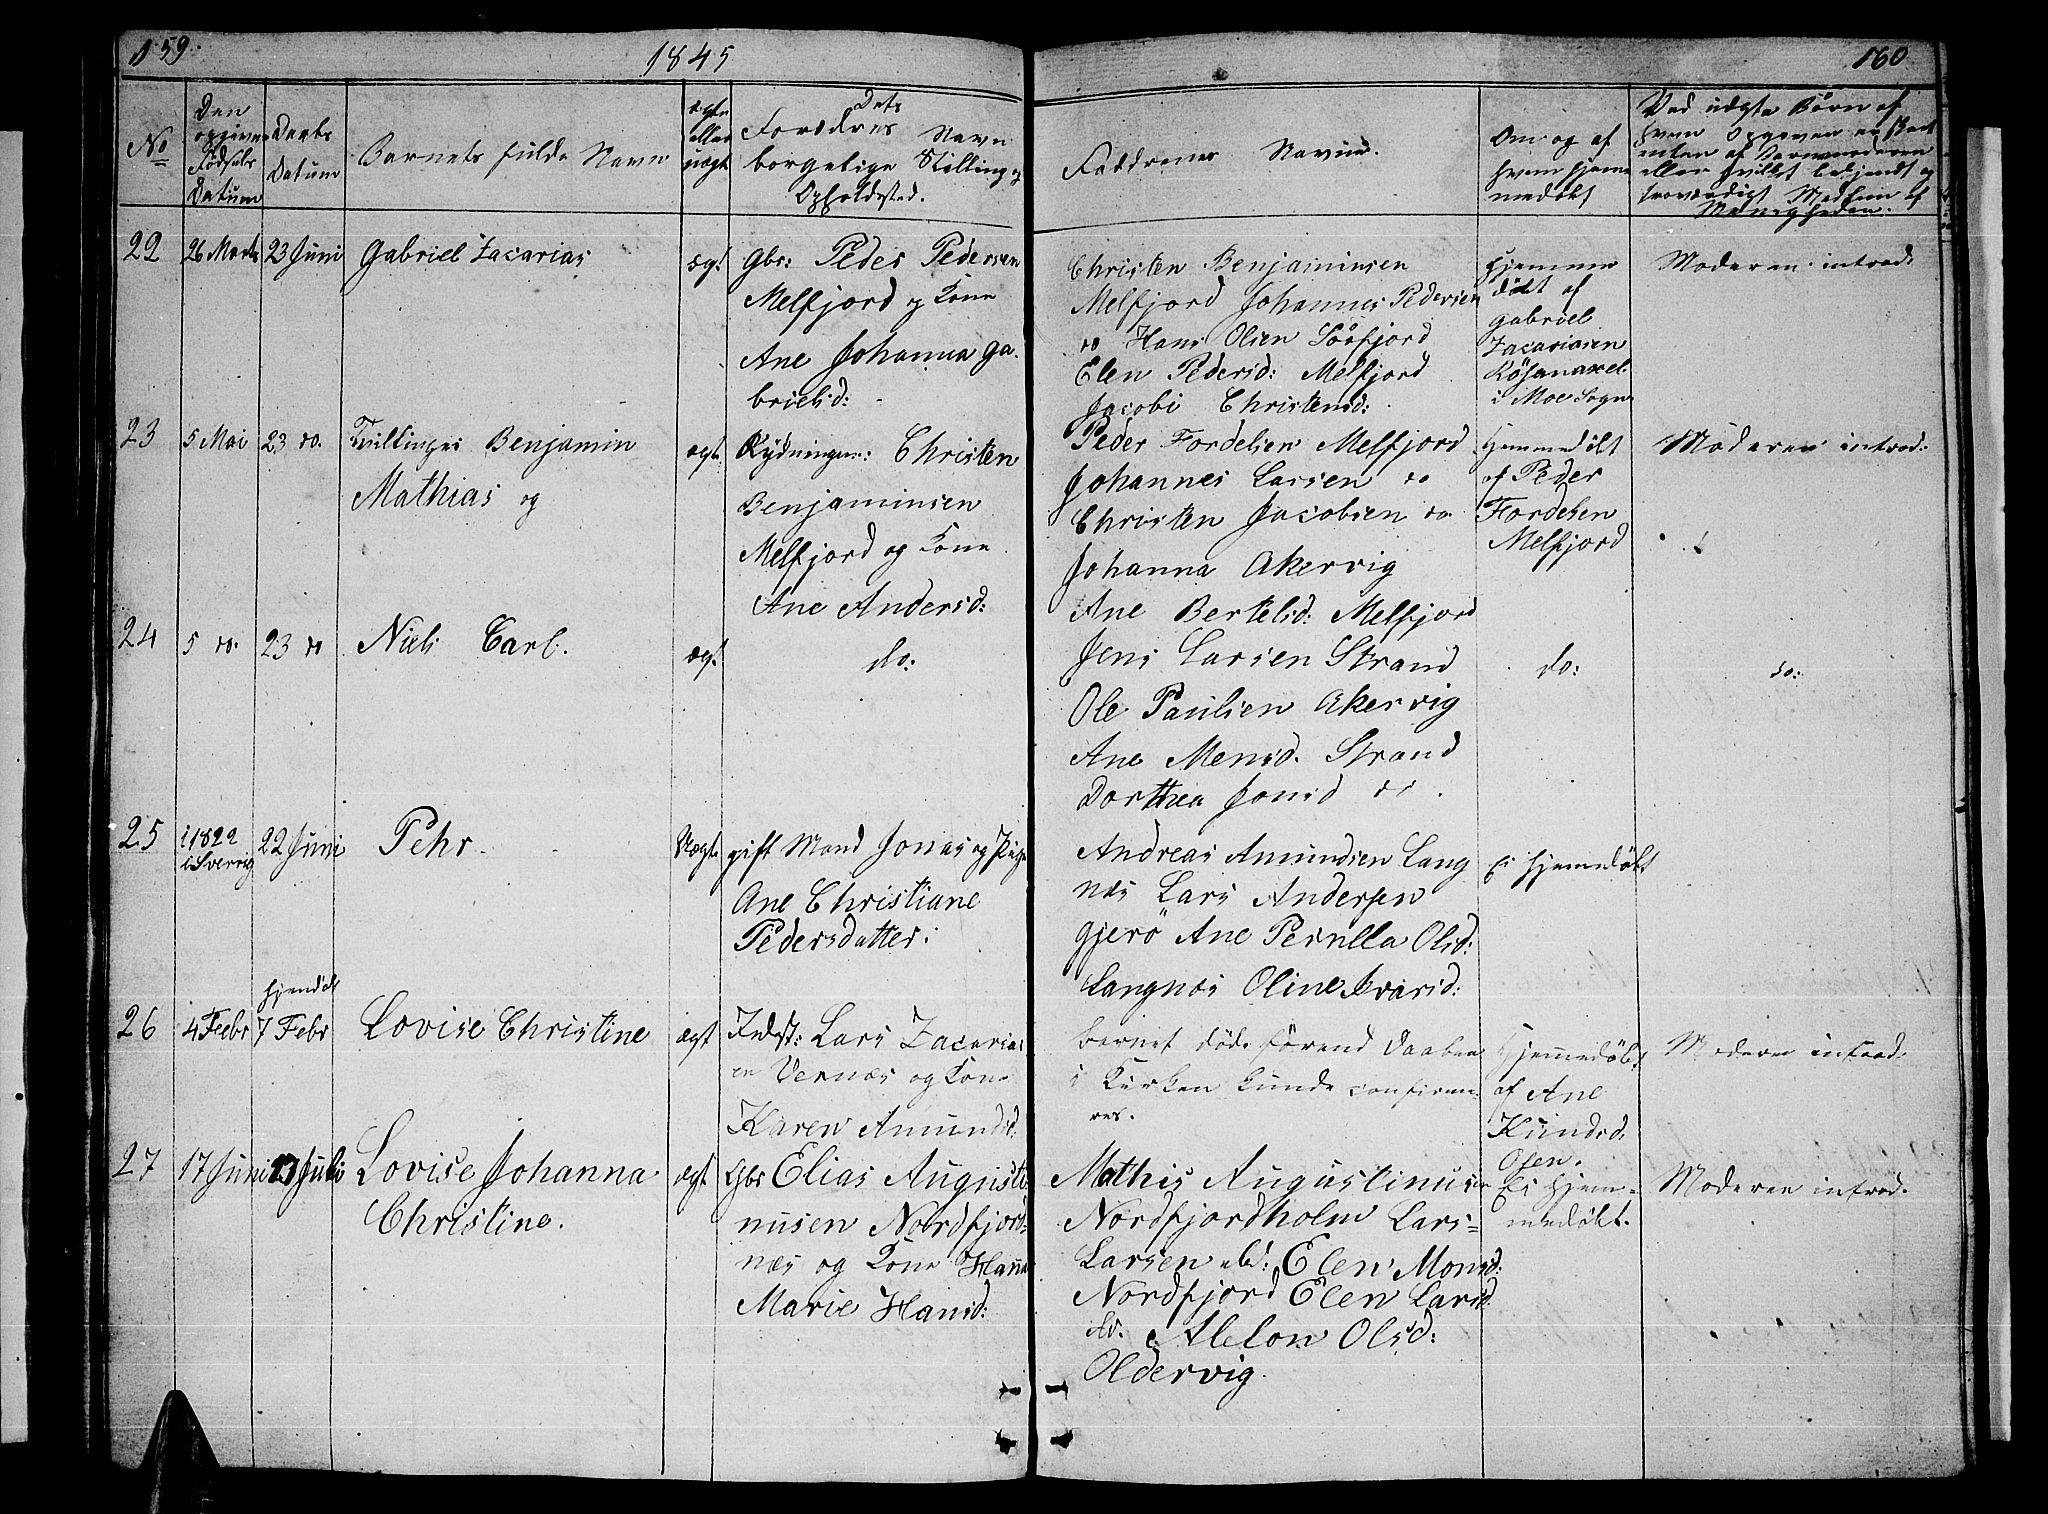 159.
1845
160
No
Den
opgivne
Fødsels
Datum
Daabs
Datum
Barnets fulde Navn
ægte
eller
uægt
Dets
Forældres Navn
borgelige Stilling og
Opholdssted.
Faddrenes Navne.
Om og af
hvem hjem
medøbt
Ved uægte Børn af
hvem Opgaven er skeet
enten af Barnemoderen
eller hvilket bekjendt og
troværdigt Medlem af
Menigheden.
22
26 Marts
23 Juni
Gabriel Zacarias
ægt
Gbr: Peder Pedersen
Melfjord og Kone
Ane Johanna Ga-
brielsd:
Christen Benjaminsen
Melfjord Johannes Pedersen
do Hans Olsen Sörfjord
Elen Pedersd: Melfjord
Jacobi Christensd:
Hjemme
döbt af
Gabriel
Zacariasen
i Moe Sogn
Moderen introd:
23
5 Mai
23 do.
Tvillinger Benjamin
Mathias og
ægt.
Rydningsm: Christen
Benjaminsen
Melfjord og Kone
Ane Andersd:
Peder Fordelsen Melfjord
Johannes Larsen do
Christen Jacobsen do
Johanna Akervig
Ane Bertelsd: Melfjord
Hjemmedöbt
af Peder
Fordelsen
Melfjord
Moderen introd:
24
5 do.
23 do
Niels Carl.
ægt
do:
Jens Larsen Strand
Ole Paulsen Akervig
Ane Mensd. Strand
Dorthea Jonsd do.
do:
do:
25
i 1822
i Sverrig
22 Juni
Pehr
Uægte
gift Mand Jonas og Pige
Ane Christiane
Pedersdatter:
Andreas Amundsen Lang
næs Lars Andersen
Gjerö Ane Pernlla Olsd:
Langnæs Oline Ivarsd:
Ei hjemedöbt
26
4 Febr
hjemdöbt
7 Febr
Lovise Christine
ægt
Indst: Lars Zacarias
en Vernæs og Kone
Karen Amundsd:
Barnet döde förend Daaben
i Kirken kunde confirme
res.
Hjemmedöbt
af Ane
Knudsd.
Osen.
Moderen introd.
27
17 Juni
13 Juli
Lovise Johanna
Christine.
ægt
Gbr Elias Augusti-
nusen Nordfjord-
næs og Kone Hana
Marie Hansd:
Mathis Augustinusen
Nordfjordholm Lars
Larsen ibd: Elen Monsd:
Nordfjord Elen Larsd:
ibd. Aleton Olsd:
Oldervig.
Ei hjem-
medöbt.
Moderen introd.